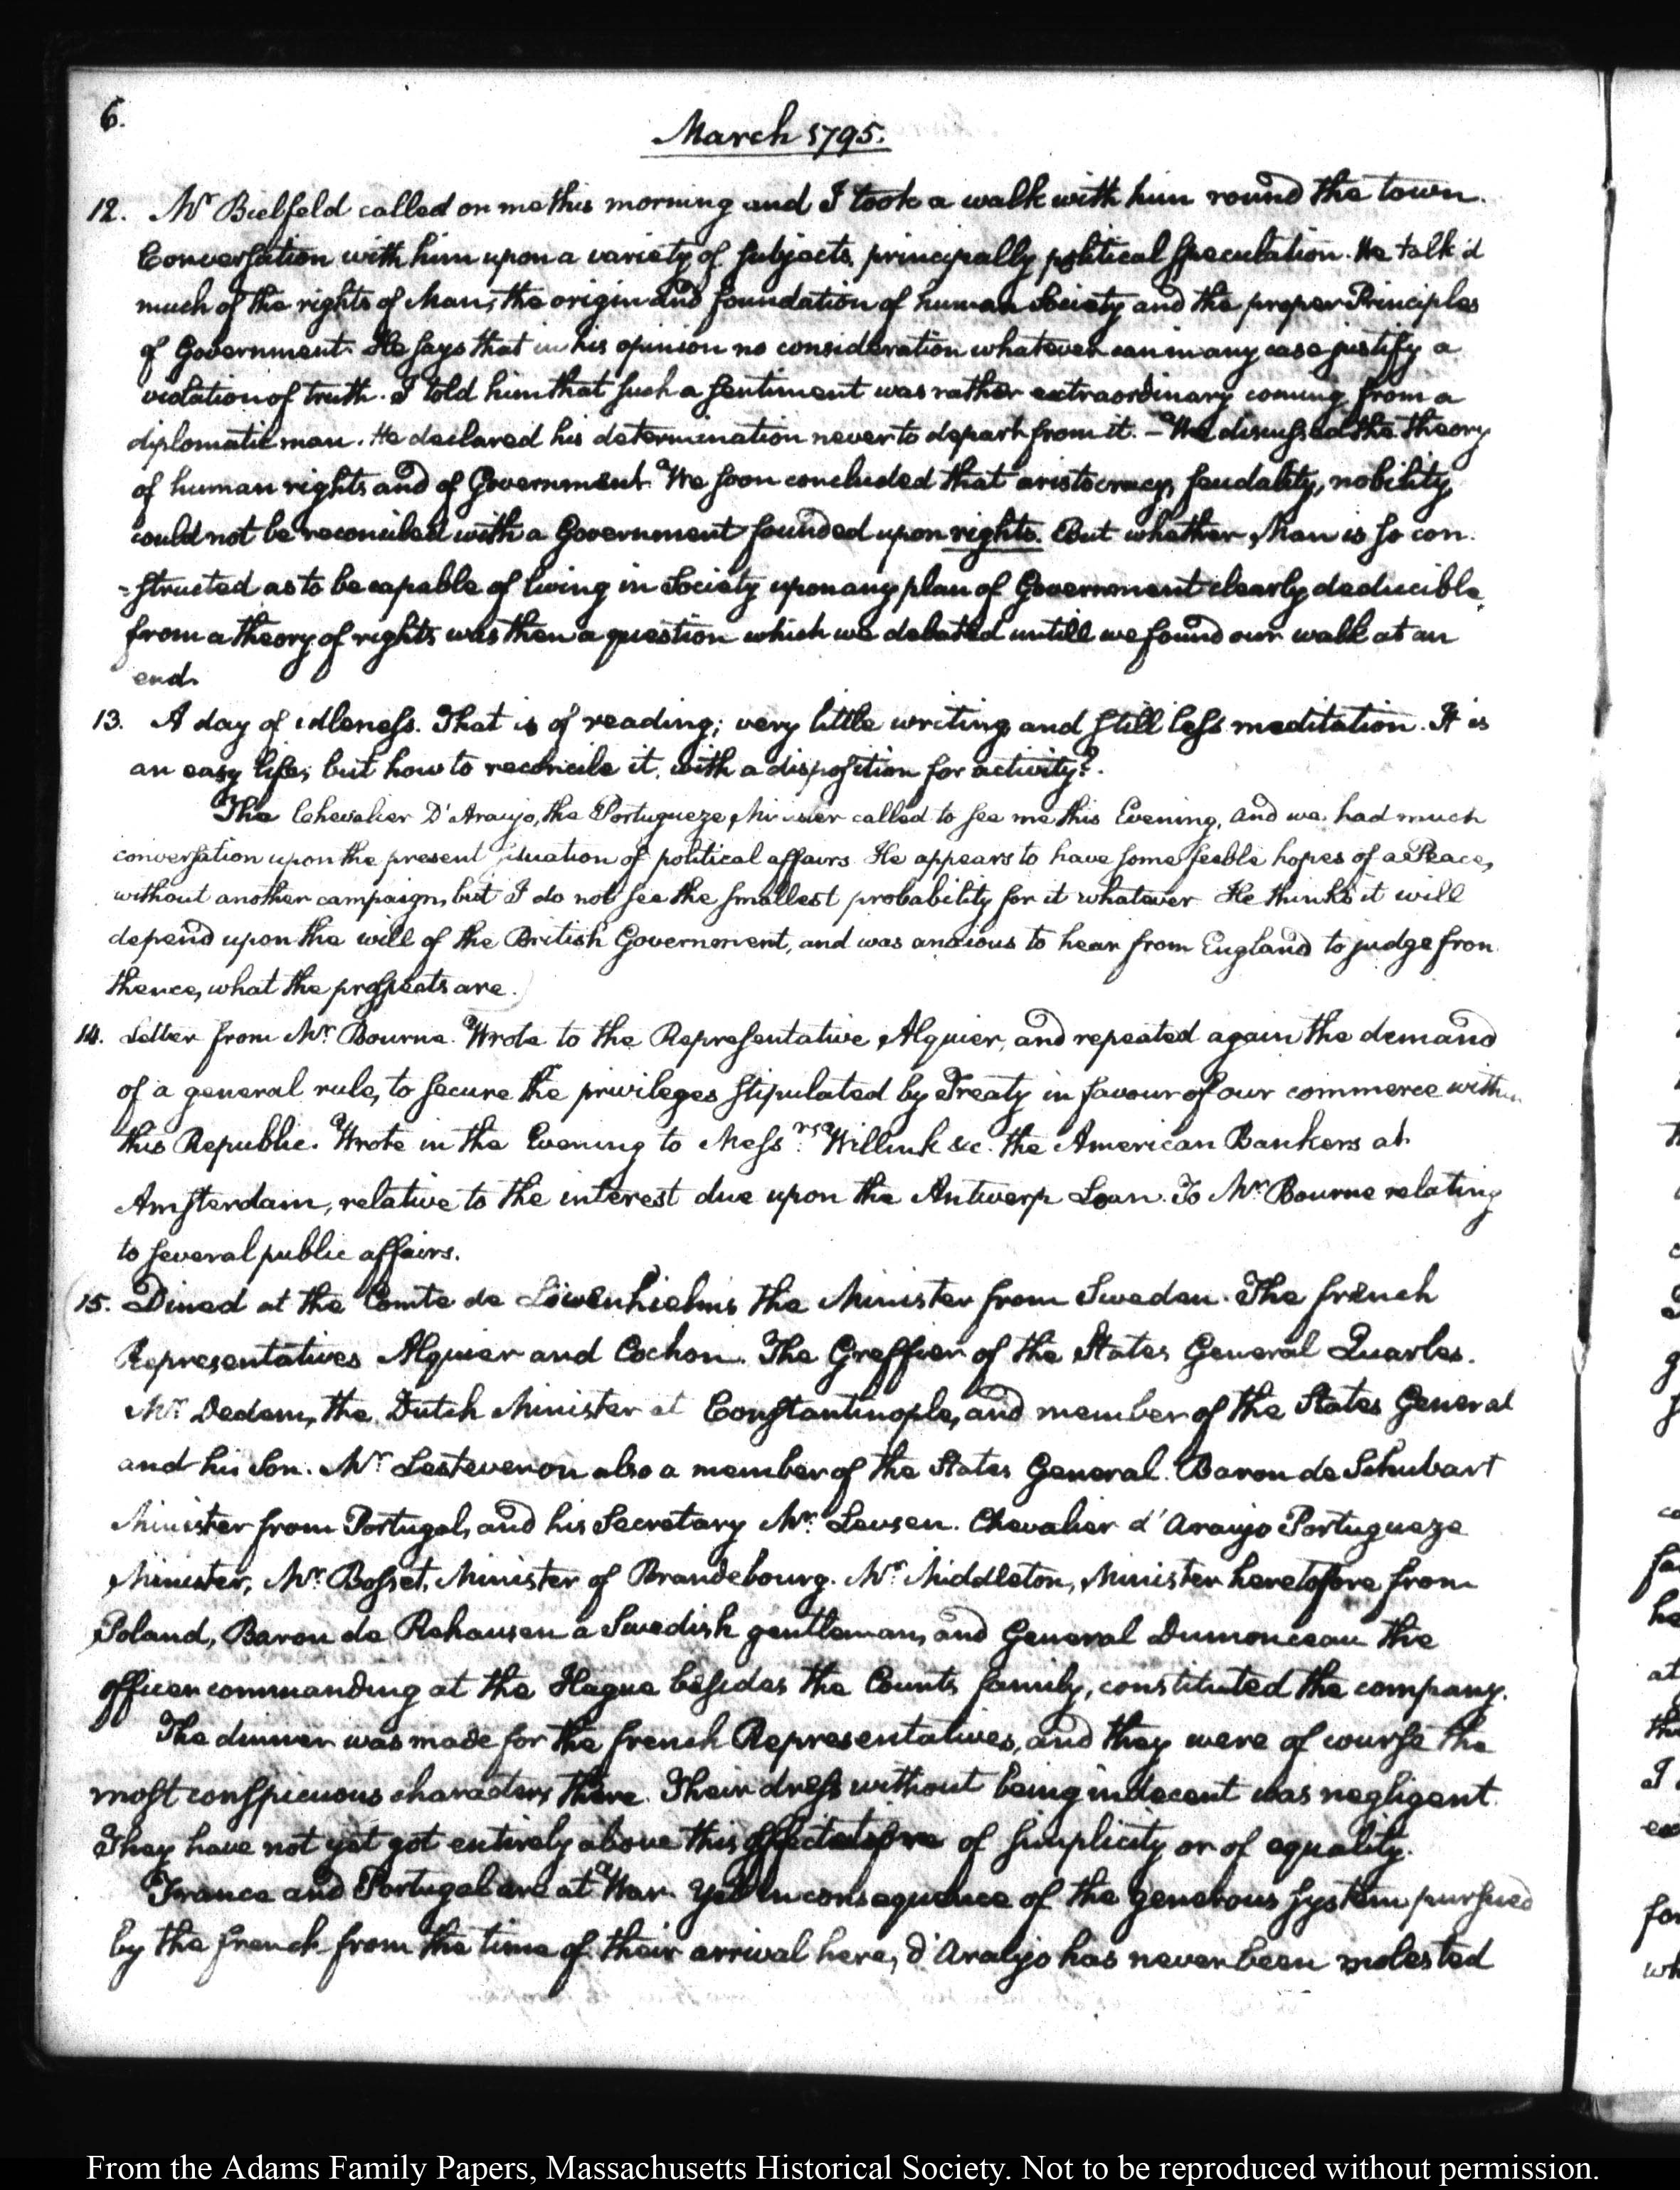 6.
March 1795.
12. Mr Bielfeld called on me this morning and I took a walk with him round the town.
Conversation with him upon a variety of subjects, principally political speculation. He talk'd
much of the rights of Man, the origin and foundation of human Society and the proper Principles
of Government. He says that in his opinion no consideration whatever can in any case justify a
violation of truth. I told him that such a sentiment was rather extraordinary coming from a
diplomatic man. He declared his determination never to depart from it. — We discussed the theory
of human rights and of Government. We soon concluded that aristocracy, feudality, nobility,
could not be reconciled with a Government founded upon rights. But whether Man is so con-
=structed as to be capable of living in Society upon any plan of Government clearly deducible
from a theory of rights was then a question which we debated untill we found our walk at an
end.
13. A day of idleness. That is of reading; very little writing and still less meditation. It is
an easy life; but how to reconcile it, with a disposition for activity?.
The Chevalier D'Araujo, the Portugueze Minister called to see me this Evening, and we had much
conversation upon the present situation of political affairs. He appears to have some feeble hopes of a Peace,
without another campaign, but I do not see the smallest probability for it whatever. He thinks it will
depend upon the will of the British Government, and was anxious to hear from England to judge from
thence, what the prospects are.
14. Letter from Mr. Bourne. Wrote to the Representative Alquier, and repeated again the demand
of a general rule, to secure the privileges stipulated by Treaty in favour of our commerce within
this Republic. Wrote in the Evening to Messrs. Willink &c. the American Bankers at
Amsterdam, relative to the interest due upon the Antwerp Loan. To Mr. Bourne relating
to several public affairs.
15. Dined at the Comte de Löwenhielms the Minister from Sweden. The french
Representatives Alquier and Cochon. The Greffier of the States General Quarles.
Mr. Dedem, the Dutch Minister at Constantinople, and member of the States General
and his Son. Mr. Lestevenon also a member of the States General. Baron de Schubart
Minister from Portugal, and his Secretary Mr. Levsen. Chevalier d'Araujo Portugueze
Minister, Mr. Bosset, Minister of Brandebourg. Mr. Middleton, Minister heretofore from
Poland, Baron de Rehausen a Swedish gentleman, and General Dumonceau the
officer commanding at the Hague besides the Counts family, constituted the company.
The dinner was made for the french Representatives, and they were of course the
most conspicuous characters there. Their dress without being indecent was negligent.
They have not yet got entirely above this of simplicity or of equality.
France and Portugal are at War. Yet in consequence of the generous system pursued
by the french from the time of their arrival here, d'Araujo has never been molested
From the Adams Family Papers, Massachusetts Historical Society. Not to be reproduced without permission.